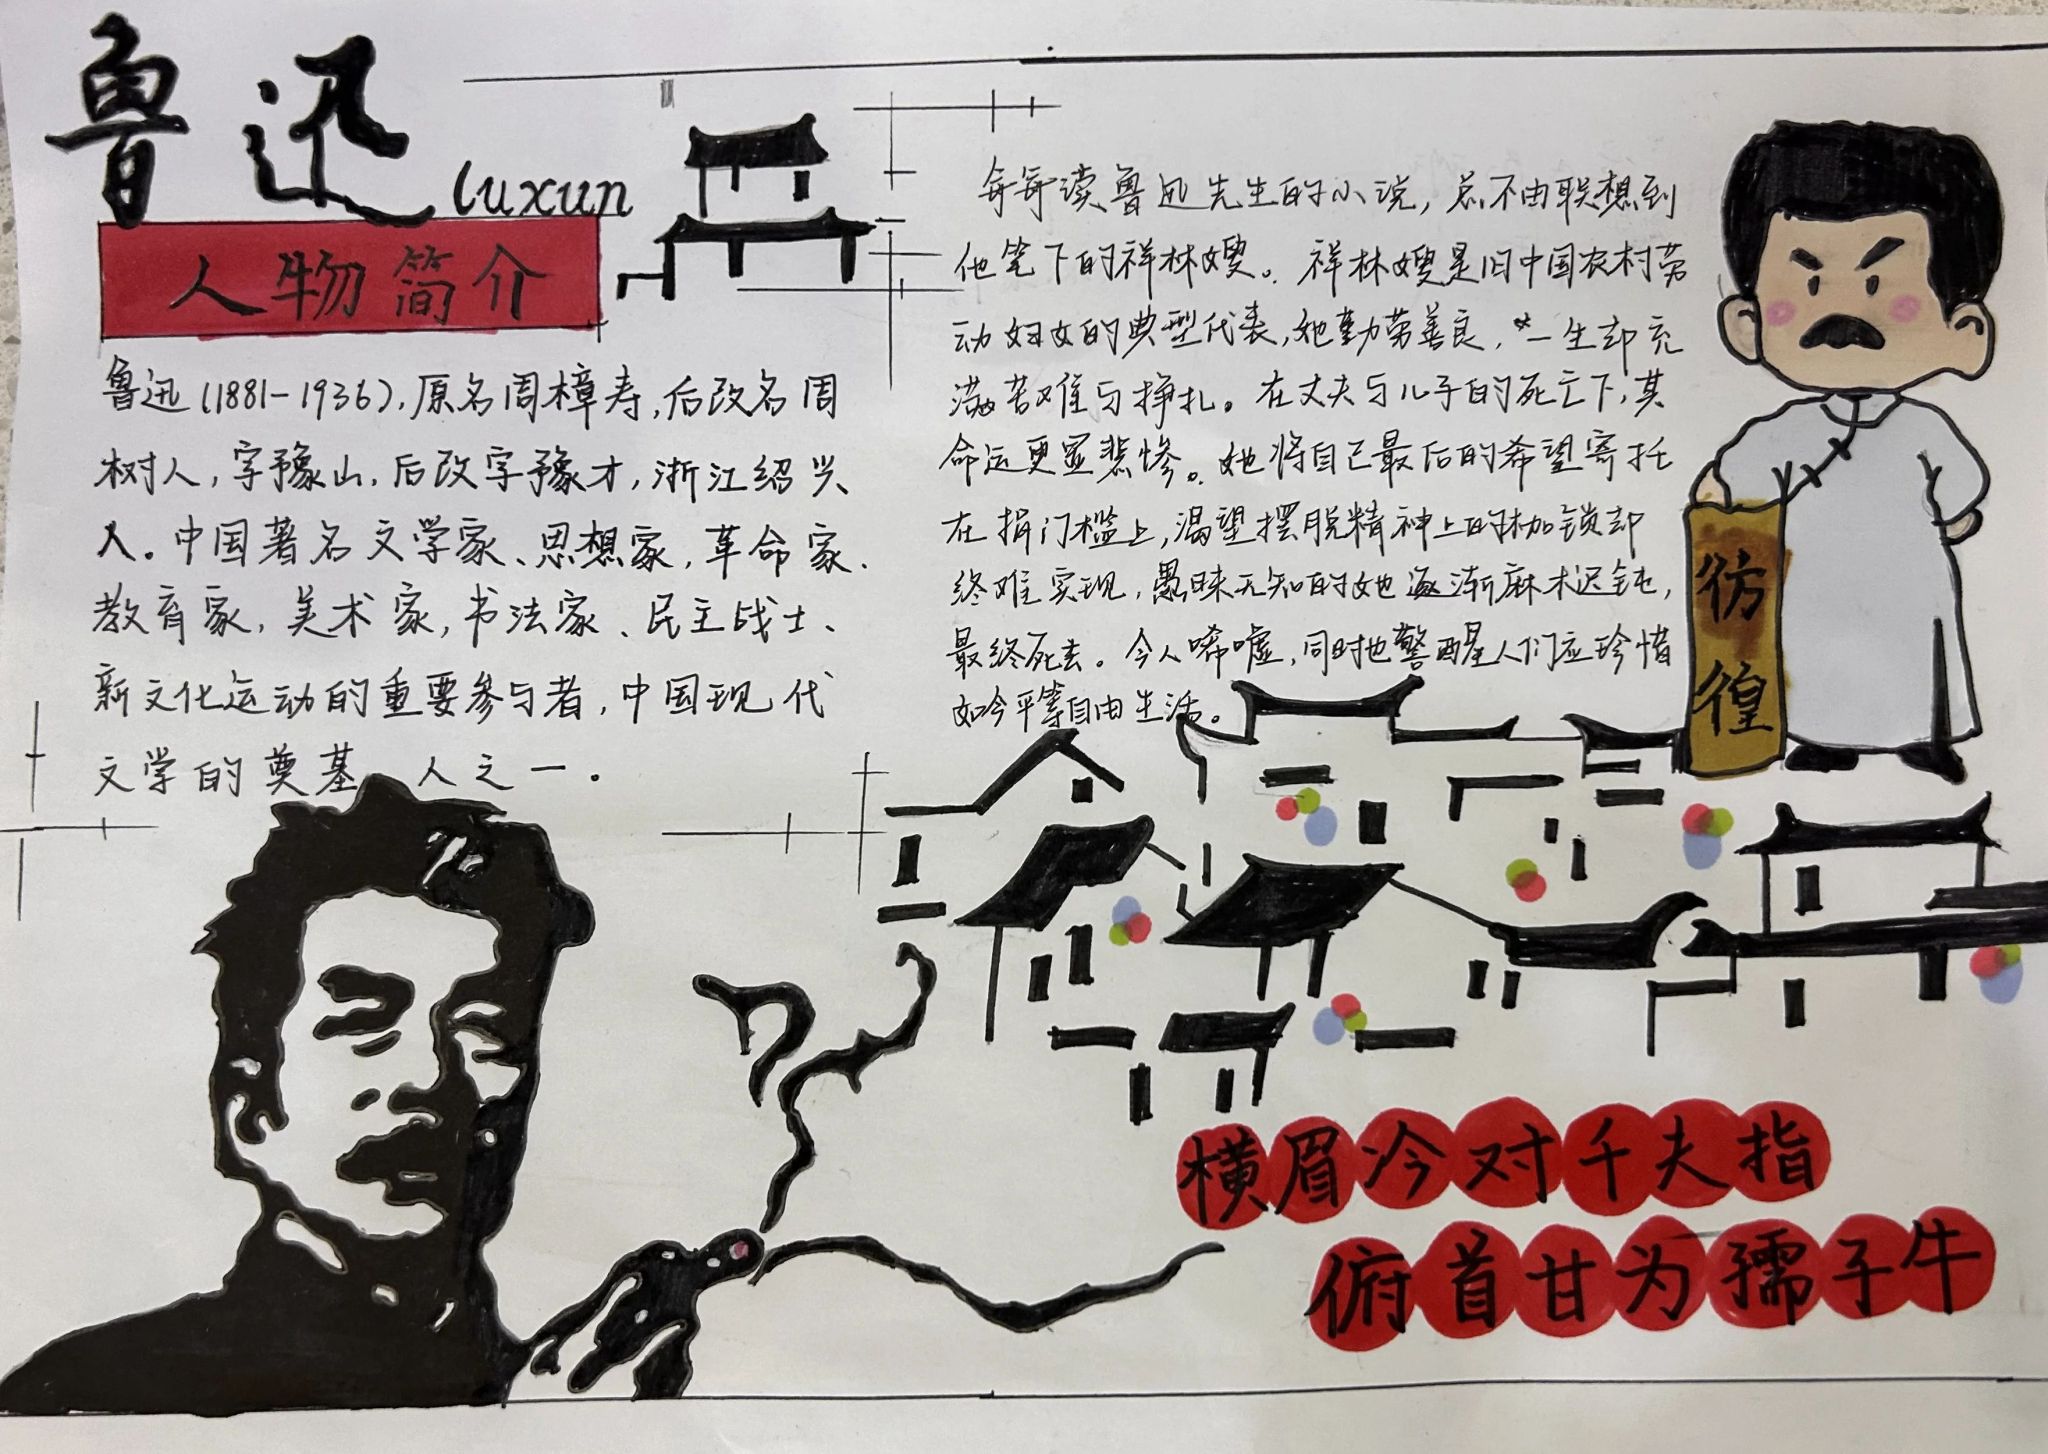 鲁迅
luxun
人物简介
鲁迅(1881-1936),原名周樟寿,后改名周
树人,字豫山,后改字豫才,浙江绍兴
人。中国著名文学家、思想家,革命家、
教育家,美术家,书法家、民主战士、
新文化运动的重要参与者,中国现代
文学的奠基人之一.
每每读鲁迅先生的小说,总不由联想到
他笔下的祥林嫂。祥林嫂是旧中国农村劳
动妇女的典型代表,她勤劳善良,一生却充
满苦难与挣扎。在丈夫与儿子的死亡下,其
命运更显悲惨。她将自己最后的希望寄托
在捐门槛上,渴望摆脱精神上的枷锁却
终难实现,愚昧无知的她逐渐麻木迟钝,
最终死去。令人唏嘘,同时也警醒人们应珍惜
如今平等自由生活。
彷
徨
横眉冷对千夫指
俯首甘为孺子牛